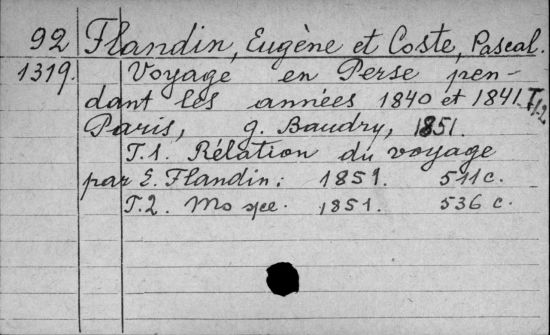 92 Flandin, Eugène et Coste, Pascal.
1319. Voyage en Perse pen-
dant les années 1840 et 1841. T. 1-2
Paris, g. Baudry, 1851.
T.1. Rélation du voyage
par E. Flandin: 1851. 511 c.
T.2. То же. 1851. 536 c.